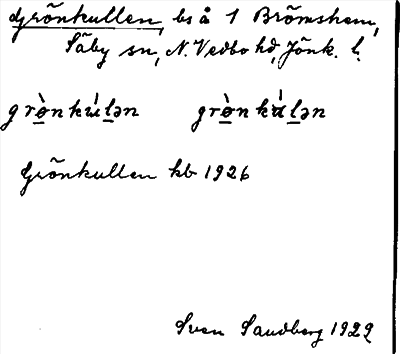 Grönkullen, bs å 1 Brömshem,
Säby sn, N. Vedbo hd, Jönk. l.
grò̱nkúḻən grò̱nká̱ḻən
Grönkullen kb 1926
Sven Sandberg 1929